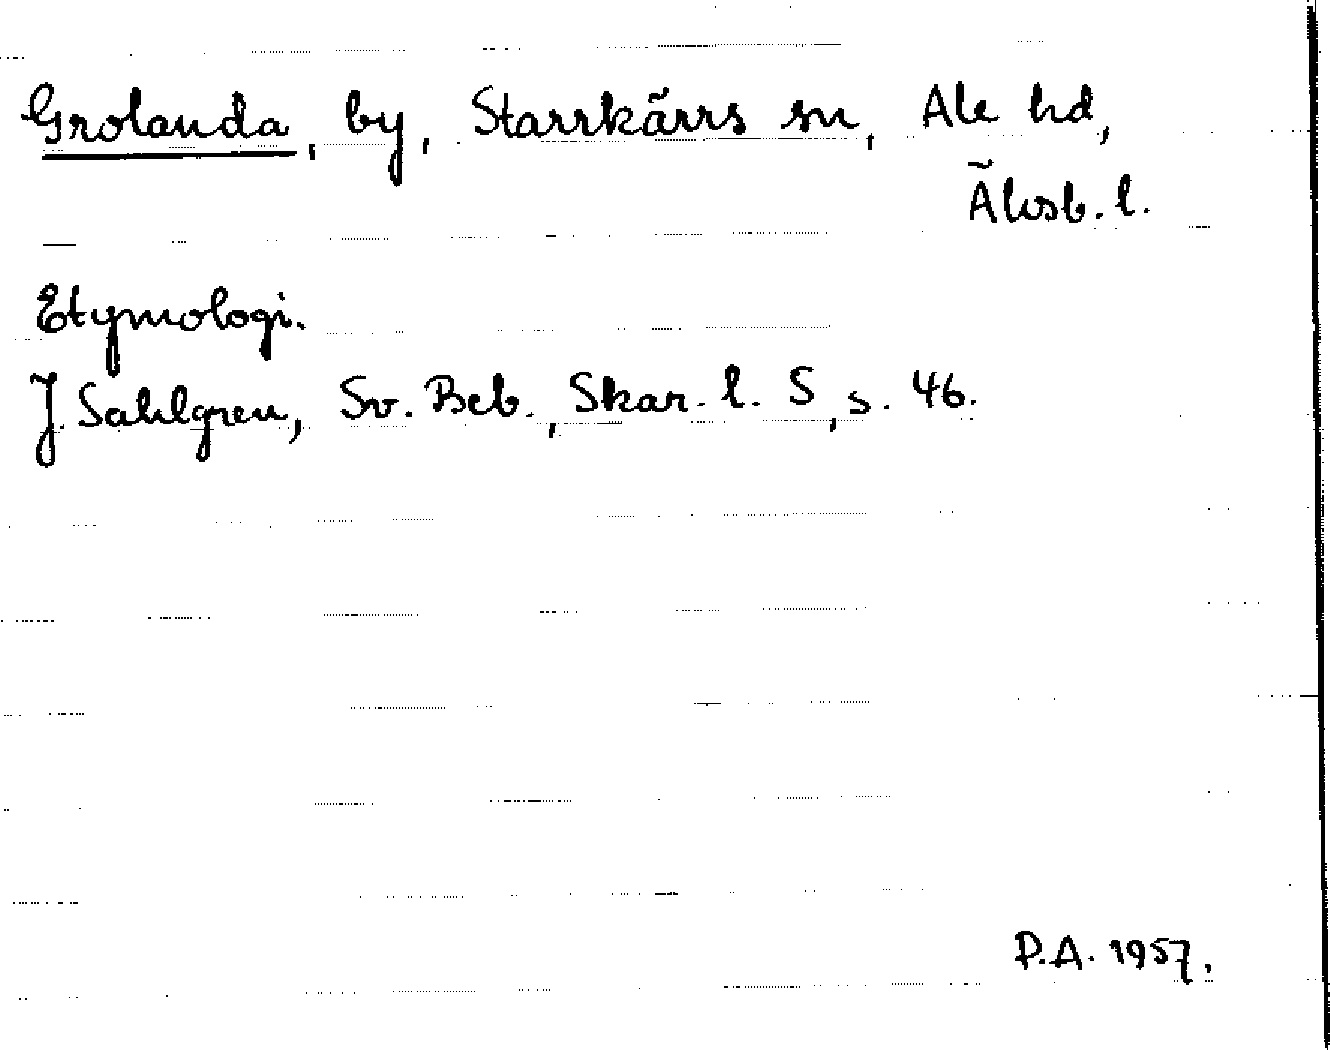 Grolanda, by, Starrkärrs sn, Ale hd,
Älvsb. l.
Etymologi.
J. Sahlgren, Sv. Beb., Skar. l. S, s. 46.
P.A. 1957.